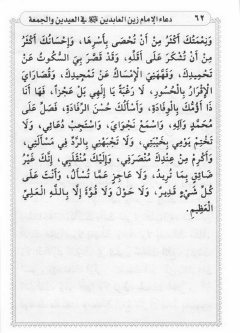 ٦٢ دعاء الإمام زين العابدين في العيدين والجمعة
وَنِعْمَتُكَ أَكْثَرُ مِنْ أَنْ تُحْصَى بِأَسْرِهَا، وَإِحْسَانُكَ أَكْثَرُ
مِنْ أَنْ تُشْكَرَ عَلَى أَقَلِّهِ، وَقَدْ قَصَّرَ بِيَ السُّكُوتُ عَنْ
تَحْمِيدِكَ، وَفَهَّهَنِيَ الْإِمْسَاكُ عَنْ تَمْجِيدِكَ، وَقُصَارَايَ
الْإِقْرَارُ بِالْحُسُورِ، لَا رَغْبَةً يَا إِلَهِي بَلْ عَجْزاً، فَهَا أَنَا
ذَا أَؤُمُّكَ بِالْوِفَادَةِ، وَأَسْأَلُكَ حُسْنَ الرِّفَادَةِ، فَصَلِّ عَلَى
مُحَمَّدٍ وَآلِهِ، وَاسْمَعْ نَجْوَايَ، وَاسْتَجِبْ دُعَائِي، وَلَا
تَخْتِمْ يَوْمِي بِخَيْبَتِي، وَلَا تَجْبَهْنِي بِالرَّدِّ فِي مَسْأَلَتِي،
وَأَكْرِمْ مِنْ عِنْدِكَ مُنْصَرَفِي، وَإِلَيْكَ مُنْقَلَبِي، إِنَّكَ غَيْرُ
ضَائِقٍ بِمَا تُرِيدُ، وَلَا عَاجِزٍ عَمَّا تُسْأَلُ، وَأَنْتَ عَلَى
كُلِّ شَيْءٍ قَدِيرٌ، وَلَا حَوْلَ وَلَا قُوَّةَ إِلَّا بِاللَّهِ الْعَلِيِّ
الْعَظِيمِ.